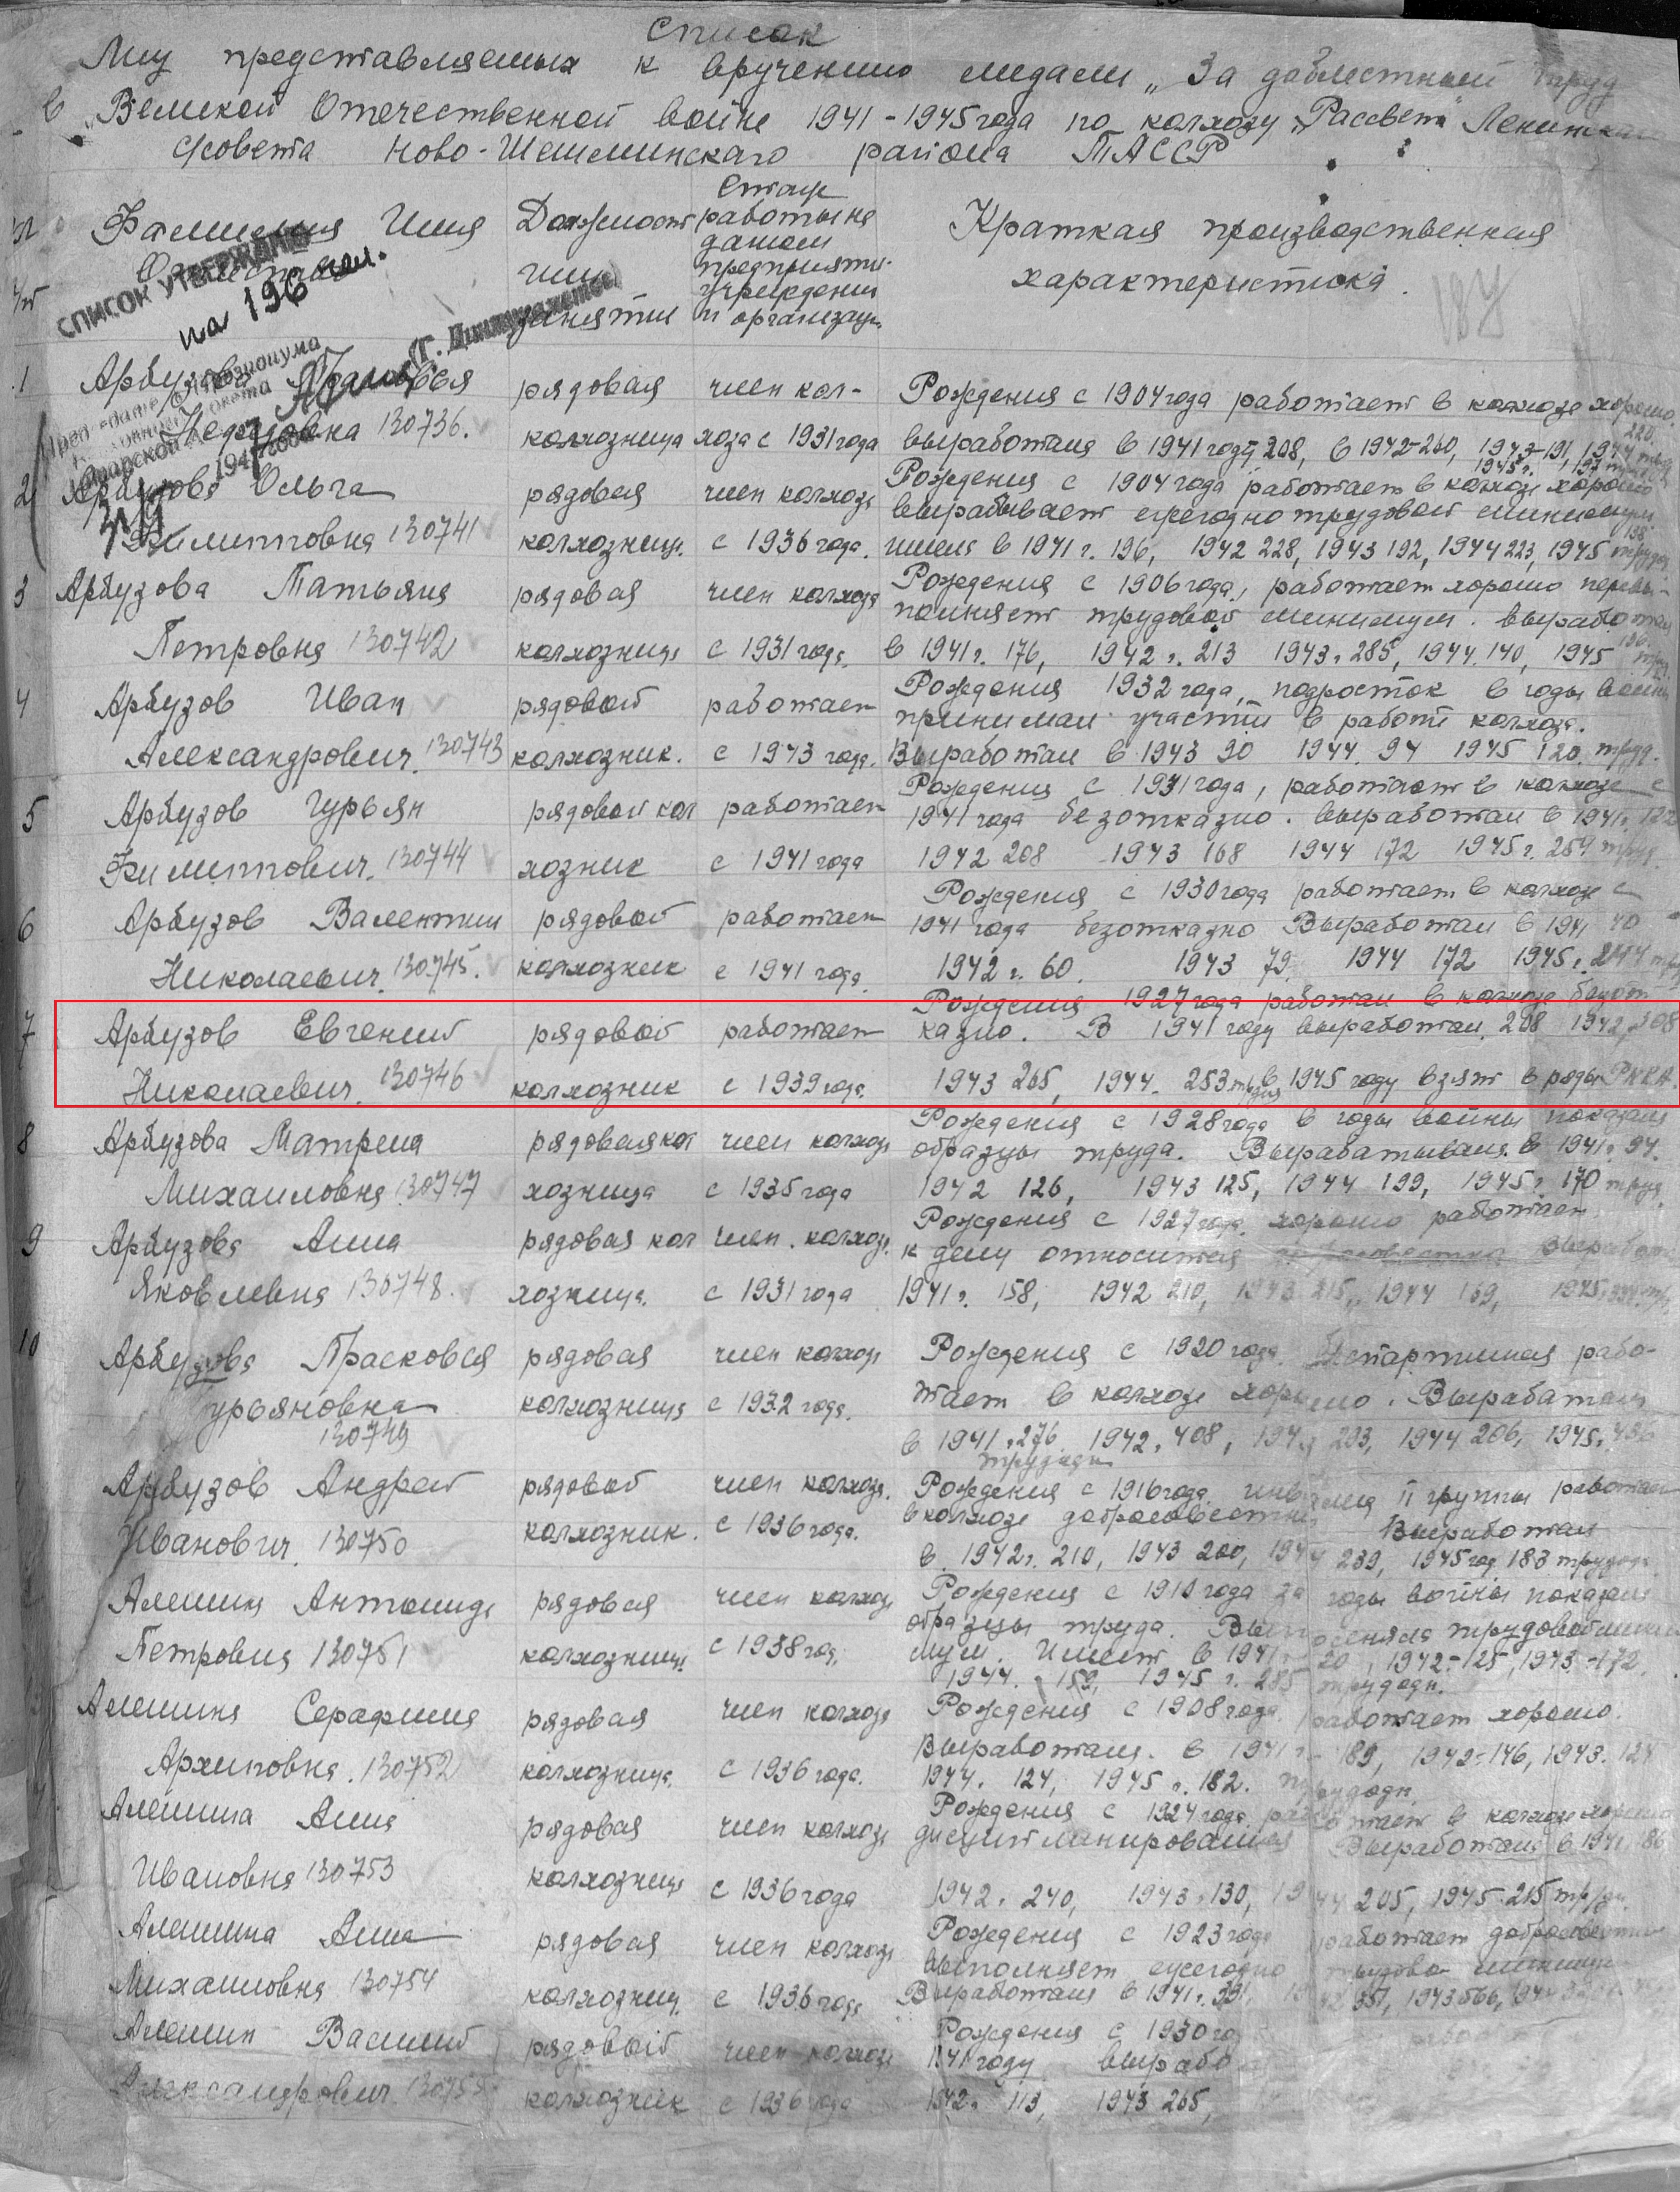 Список
Лиц представляемых к вручению медали „За доблестный труд
в Великой Отечественной войне 1941-1945 года по колхозу „Рассвет"
с/совета Ново-Шешминского района ТАССР
Фамилия Имя Должност Стаж
работы на
данном
предприяти.
учрежден
и организац.
Краткая производственная
характеристика.
занятия
СПИСОК УТВЕРЖДЕН
на 196 чел.
187
1 Арбузова рядовая член кол- Рождения с 1904 года работает в колхозе хорошо.
130736. колхозница хоза с 1931 года выработала в 1941 году 208, в 1942-260, 1943-191, 1944 220
1945 г.
2 Арбузова Ольга рядовая член колхоза Рождения с 1904 года работает в колхозе хорошо
вырабатывает ежегодно трудовой минимум
Филипповна 130741 колхозница с 1936 года. имела в 1941 г. 196, 1942 228, 1943 192, 1944 223, 1945 198
3 Арбузова Татьяна рядовая член колхоза Рождения с 1906 года, работает хорошо перевы-
полняет трудовой минимум. выработала
Петровна 130742 колхозница с 1931 года. в 1941 г. 176, 1942 г. 213 1943 г. 285, 1944 140, 1945
4 Арбузов Иван рядовой работает Рождения 1932 года, подросток в годы войны
принимал участии в работе колхоза.
Александрович. 130743 колхозник. с 1943 года. Выработал в 1943 90 1944. 94 1945 120. труд.
5 Арбузов Гурьян рядовой кол работает Рождения с 1931 года, работает в колхозе с
1941 года безотказно. выработал в 1941 г.
Филиппович. 130744 хозник с 1941 года 1942 208 1943 168 1944 172 1945 г. 259 труд.
6 Арбузов Валентин рядовой работает Рождения с 1930 года работает в колхозе с
1941 года безотказно Выработал в 1941 40
Николаевич. 130745. колхозник с 1941 года. 1942 г. 60. 1943 79 1944 172 1945 г. 244
7 Арбузов Евгений рядовой работает Рождения 1927 года работал в колхозе безот
казно. В 1941 году выработал. 208 1942, 308
Николаевич. 130746 колхозник с 1939 года. 1943 265, 1944. 253 в 1945 году взят в ряды РККА
8 Арбузова Матрена рядовая кол член колхоза Рождения с 1928 года в годы войны показала
образцы труда. Вырабатывала в 1941 г. 94.
Михаиловна 130747 хозница с 1935 года 1942 126, 1943 125, 1944 199, 1945 г. 170 труд.
9 Арбузова Анна рядовая кол член. колхоза. Рождения с 1927 года хорошо работает
к делу относится
Яковлевна 130748. хозница. с 1931 года 1941 г. 158, 1942 210, 1943 215, 1944 169, 1945
10 Арбузова Прасковья рядовая член колхоза Рождения с 1920 года. Беспартийная рабо-
тает в колхозе хорошо. Выработала
Гурьяновна колхозница с 1932 года.
130749 в 1941 г. 276 1942, 408, 1943 293, 1944 206, 1945
трудодн
Арбузов Андрей рядовой член колхоза. Рождения с 1916 года инвалид II группы работает
в колхозе добросовестно Выработал
Иванович. 130750 колхозник. с 1936 года. в 1942 г. 210, 1943 200, 1944 239, 1945 год 183 трудодн
Алешина Антонида рядовая член колхоза Рождения с 1910 года за годы войны показала
образцы труда. трудовой миниму
Петровна 130751 колхозница. с 1938 год. мум. Имеет в 1941 1942-125, 1943-172,
1944. 159, 1945 г. 285 трудодн.
Алешина Серафима рядовая член колхоза Рождения с 1908 года. работает хорошо.
Архиповна. 130752 колхозница. с 1936 года. Выработала. в 1941 г.- 189, 1942-146, 1943. 124
1944. 124, 1945 г. 182. трудодн.
Алешина Анна рядовая член колхоза Рождения с 1924 года работает в колхозе хорошо
дисциплинированная Выработала в 1941 186
Ивановна 130753 колхозница с 1936 года 1942. 240, 1943. 130, 1944 205, 1945-215
Алешина Анна рядовая член колхоза Рождения с 1923 года работает добросовестно
выполняет ежегодно минимум
Михаиловна 130754 колхозниц. с 1936 года Выработала в 1941 г.
Алешин Василий рядовой член колхоза Рождения с 1930 го
1941 году вырабо
Александрович колхозник с 1936 года 1942. 113, 1943 265,